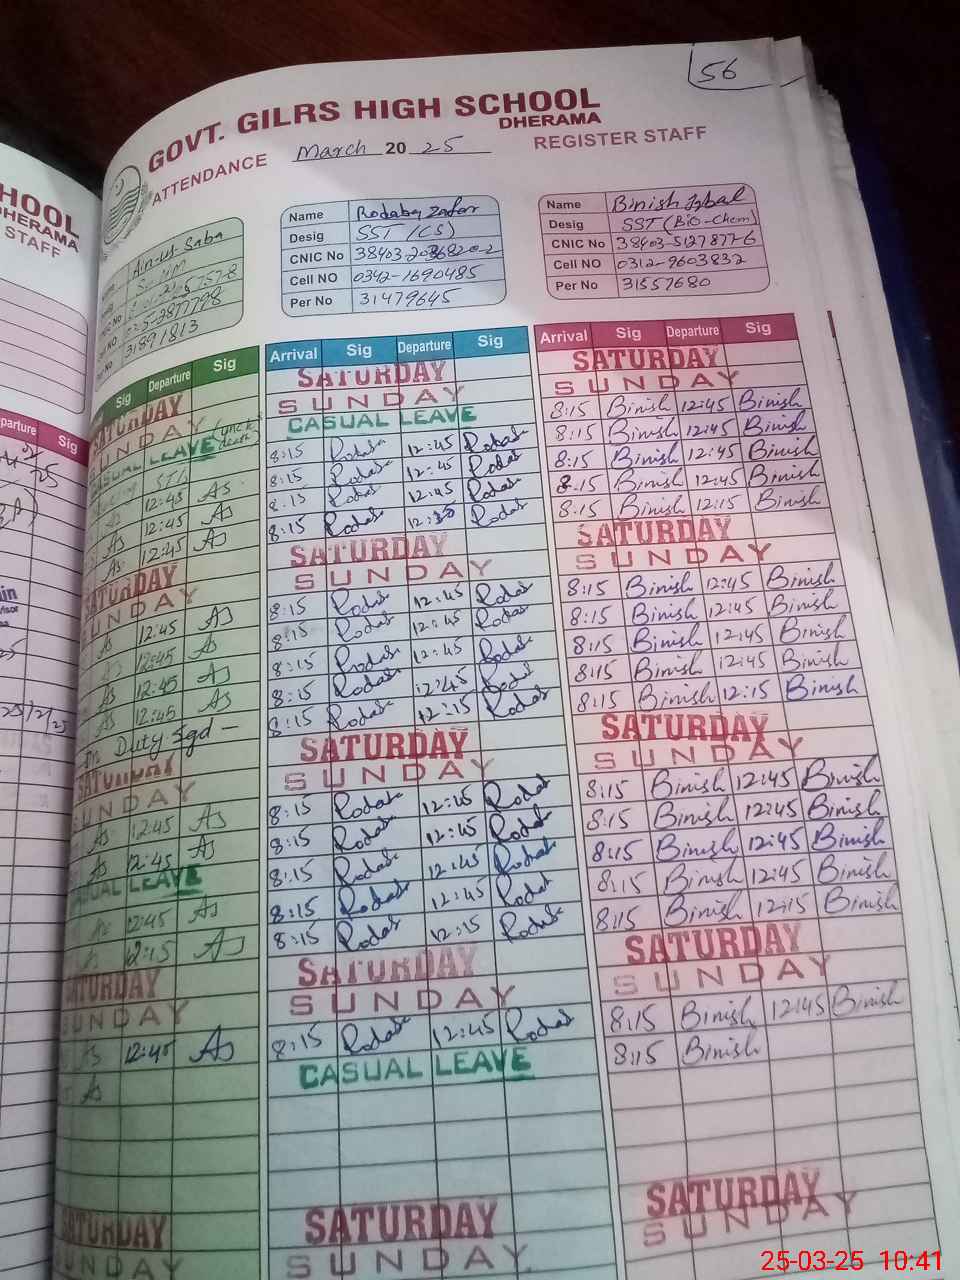 56
GOVT. GILRS HIGH SCHOOL
DHERAMA
ATTENDANCE March 20 25 REGISTER STAFF
HOOL
DHERAMA
STAFF
parture Sig
Ain-ut-Saba
31891813
Departure Sig
SATURDAY
SUNDAY
CASUAL LEAVE
12:45 As
12:45 As
12:45 As
SATURDAY
SUNDAY
12:45 As
12:45 As
12:45 As
12:45 As
on Duty Sgd -
SATURDAY
SUNDAY
As 12:45 As
As 12:45 As
CASUAL LEAVE
12:45 As
12:15 As
SATURDAY
SUNDAY
As 12:45 As
As
SATURDAY
SUNDAY
Name Rodaba Zafar
Desig SST (CS)
CNIC No
Cell NO 0342-1690485
Per No 31479645
Arrival Sig Departure Sig
SATURDAY
SUNDAY
CASUAL LEAVE
8:15 Rodab 12:45 Rodab
8:15 Rodab 12:45 Rodab
8:15 Rodab 12:45 Rodab
8:15 Rodab Rodab
SATURDAY
SUNDAY
8:15 Rodab 12:45 Rodab
8:15 Rodab 12:45 Rodab
8:15 Rodab 12:45 Rodab
8:15 Rodab 12:45 Rodab
8:15 Rodab 12:15 Rodab
SATURDAY
SUNDAY
8:15 Rodab 12:45 Rodab
8:15 Rodab 12:45 Rodab
8:15 Rodab 12:45 Rodab
8:15 Rodab 12:45 Rodab
8:15 Rodab 12:15 Rodab
SATURDAY
SUNDAY
8:15 Rodab 12:45 Rodab
CASUAL LEAVE
SATURDAY
SUNDAY
Name Binish Iqbal
Desig SST (Bio-Chem)
CNIC No 38403-5127877-6
Cell NO 0312-9603832
Per No 31557680
Arrival Sig Departure Sig
SATURDAY
SUNDAY
8:15 Binish 12:45 Binish
8:15 Binish 12:45 Binish
8:15 Binish 12:45 Binish
8:15 Binish 12:45 Binish
8:15 Binish 12:15 Binish
SATURDAY
SUNDAY
8:15 Binish 12:45 Binish
8:15 Binish 12:45 Binish
8:15 Binish 12:45 Binish
8:15 Binish 12:45 Binish
8:15 Binish 12:15 Binish
SATURDAY
SUNDAY
8:15 Binish 12:45 Binish
8:15 Binish 12:45 Binish
8:15 Binish 12:45 Binish
8:15 Binish 12:45 Binish
8:15 Binish 12:15 Binish
SATURDAY
SUNDAY
8:15 Binish 12:45 Binish
8:15 Binish
SATURDAY
SUNDAY
25-03-25 10:41